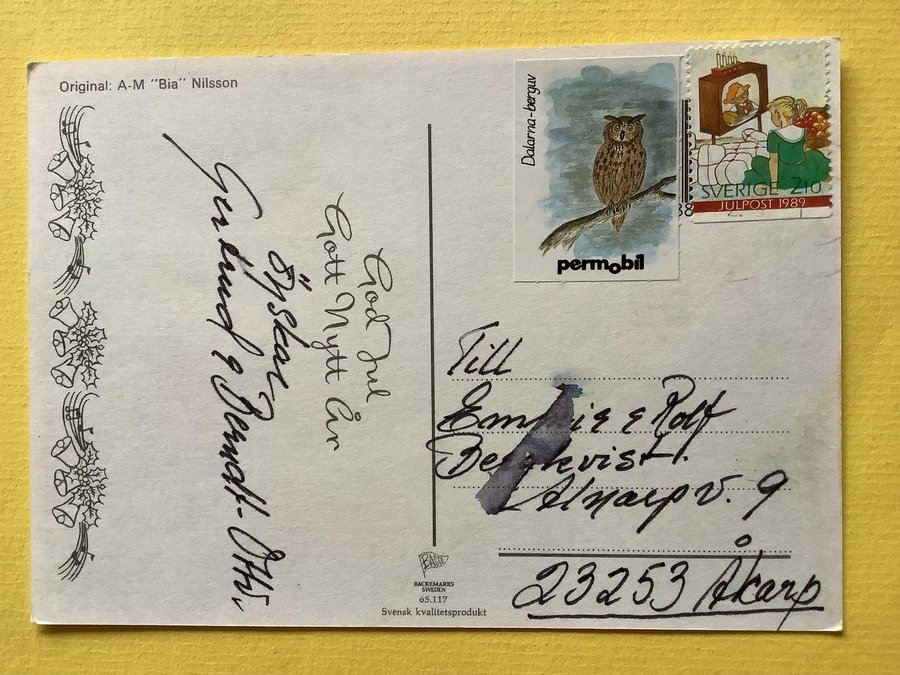 Original: A-M "Bia" Nilsson
God Jul
Gott Nytt År
önskar
Gertrud & Berndt-Otto.
Dalarna-berguv
permobil
88
SVERIGE 210
JULPOST 1989
Till
& Rolf
Alnarp v. 9
23253 Åkarp
BACKEMARKS
SWEDEN
65.117
Svensk kvalitetsprodukt